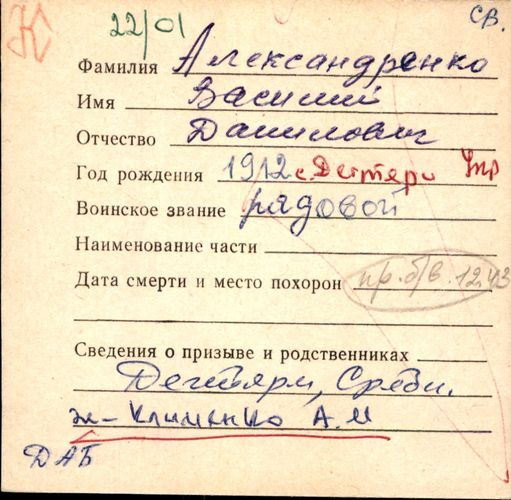 К 22/01 СВ.
Фамилия Александренко
Имя Василий
Отчество Данилович
Год рождения 1912 с. Дегтери
Воинское звание рядовой
Наименование части
Дата смерти и место похорон пр. б/в. 12.43
Сведения о призыве и родственниках
Дегтяри, Среби.
ж - Клименко А.М
ДАБ